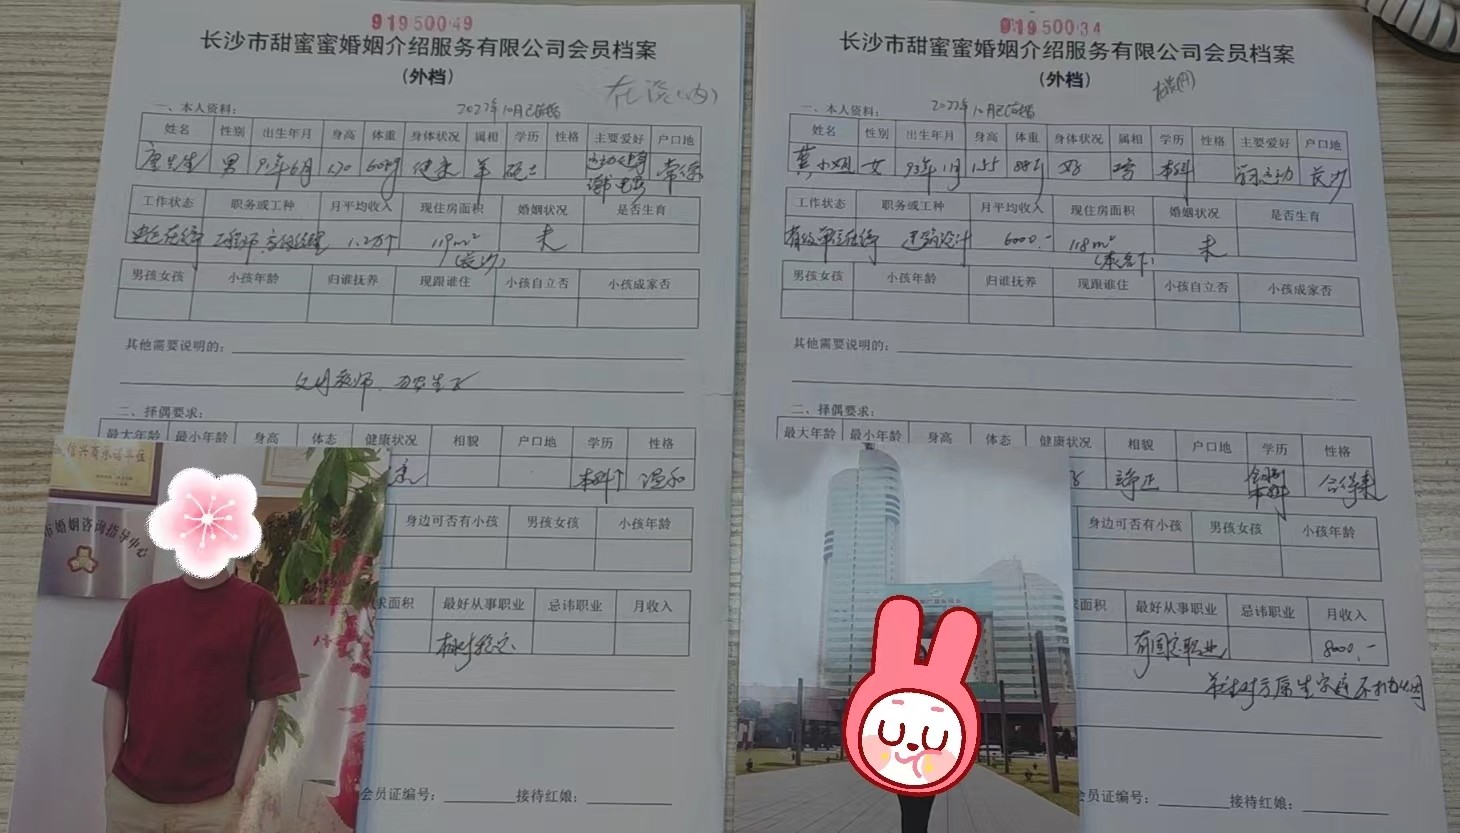 91950049
长沙市甜蜜蜜婚姻介绍服务有限公司会员档案
(外档)
一、本人资料:
2022年10月已结婚
姓名 性别 出生年月 身高 体重 身体状况 属相 学历 性格 主要爱好 户口地
唐先生 男 91年6月 170 60kg 健康 羊 硕士 常德
工作状态 职务或工种 月平均收入 现住房面积 婚姻状况 是否生育
工程师 1.2万 119m² 未
(长沙)
男孩女孩 小孩年龄 归谁抚养 现跟谁住 小孩自立否 小孩成家否
其他需要说明的:
父母教师
二、择偶要求:
最大年龄 最小年龄 身高 体态 健康状况 相貌 户口地 学历 性格
本科 温和
身边可否有小孩 男孩女孩 小孩年龄
求面积 最好从事职业 忌讳职业 月收入
相对稳定
会员证编号: 接待红娘:
信兴商承诺单位
市婚姻咨询指导中心
91950034
长沙市甜蜜蜜婚姻介绍服务有限公司会员档案
(外档)
一、本人资料:
2022年10月已结婚
姓名 性别 出生年月 身高 体重 身体状况 属相 学历 性格 主要爱好 户口地
黄小姐 女 93年11月 155 88斤 好 本科 长沙
工作状态 职务或工种 月平均收入 现住房面积 婚姻状况 是否生育
建筑设计 6000.- 118m² 未
(本名下)
男孩女孩 小孩年龄 归谁抚养 现跟谁住 小孩自立否 小孩成家否
其他需要说明的:
二、择偶要求:
最大年龄 最小年龄 身高 体态 健康状况 相貌 户口地 学历 性格
端正 全日制本科 合得来
身边可否有小孩 男孩女孩 小孩年龄
求面积 最好从事职业 忌讳职业 月收入
有固定职业 8000.-
会员证编号: 接待红娘: